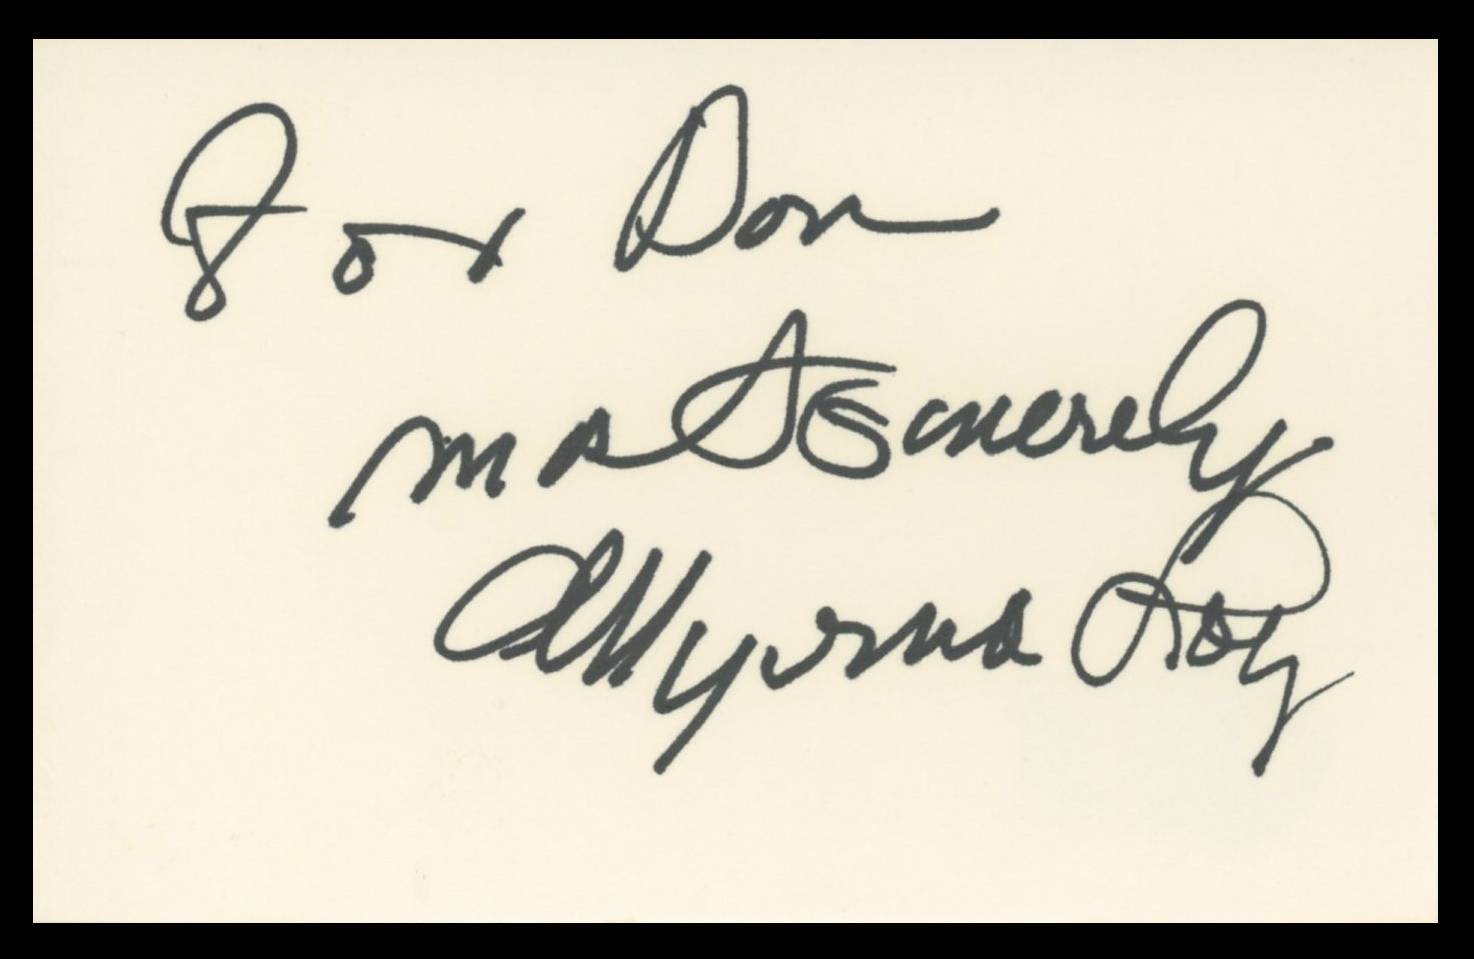 For Don
Most Sincerely
Myrna Loy